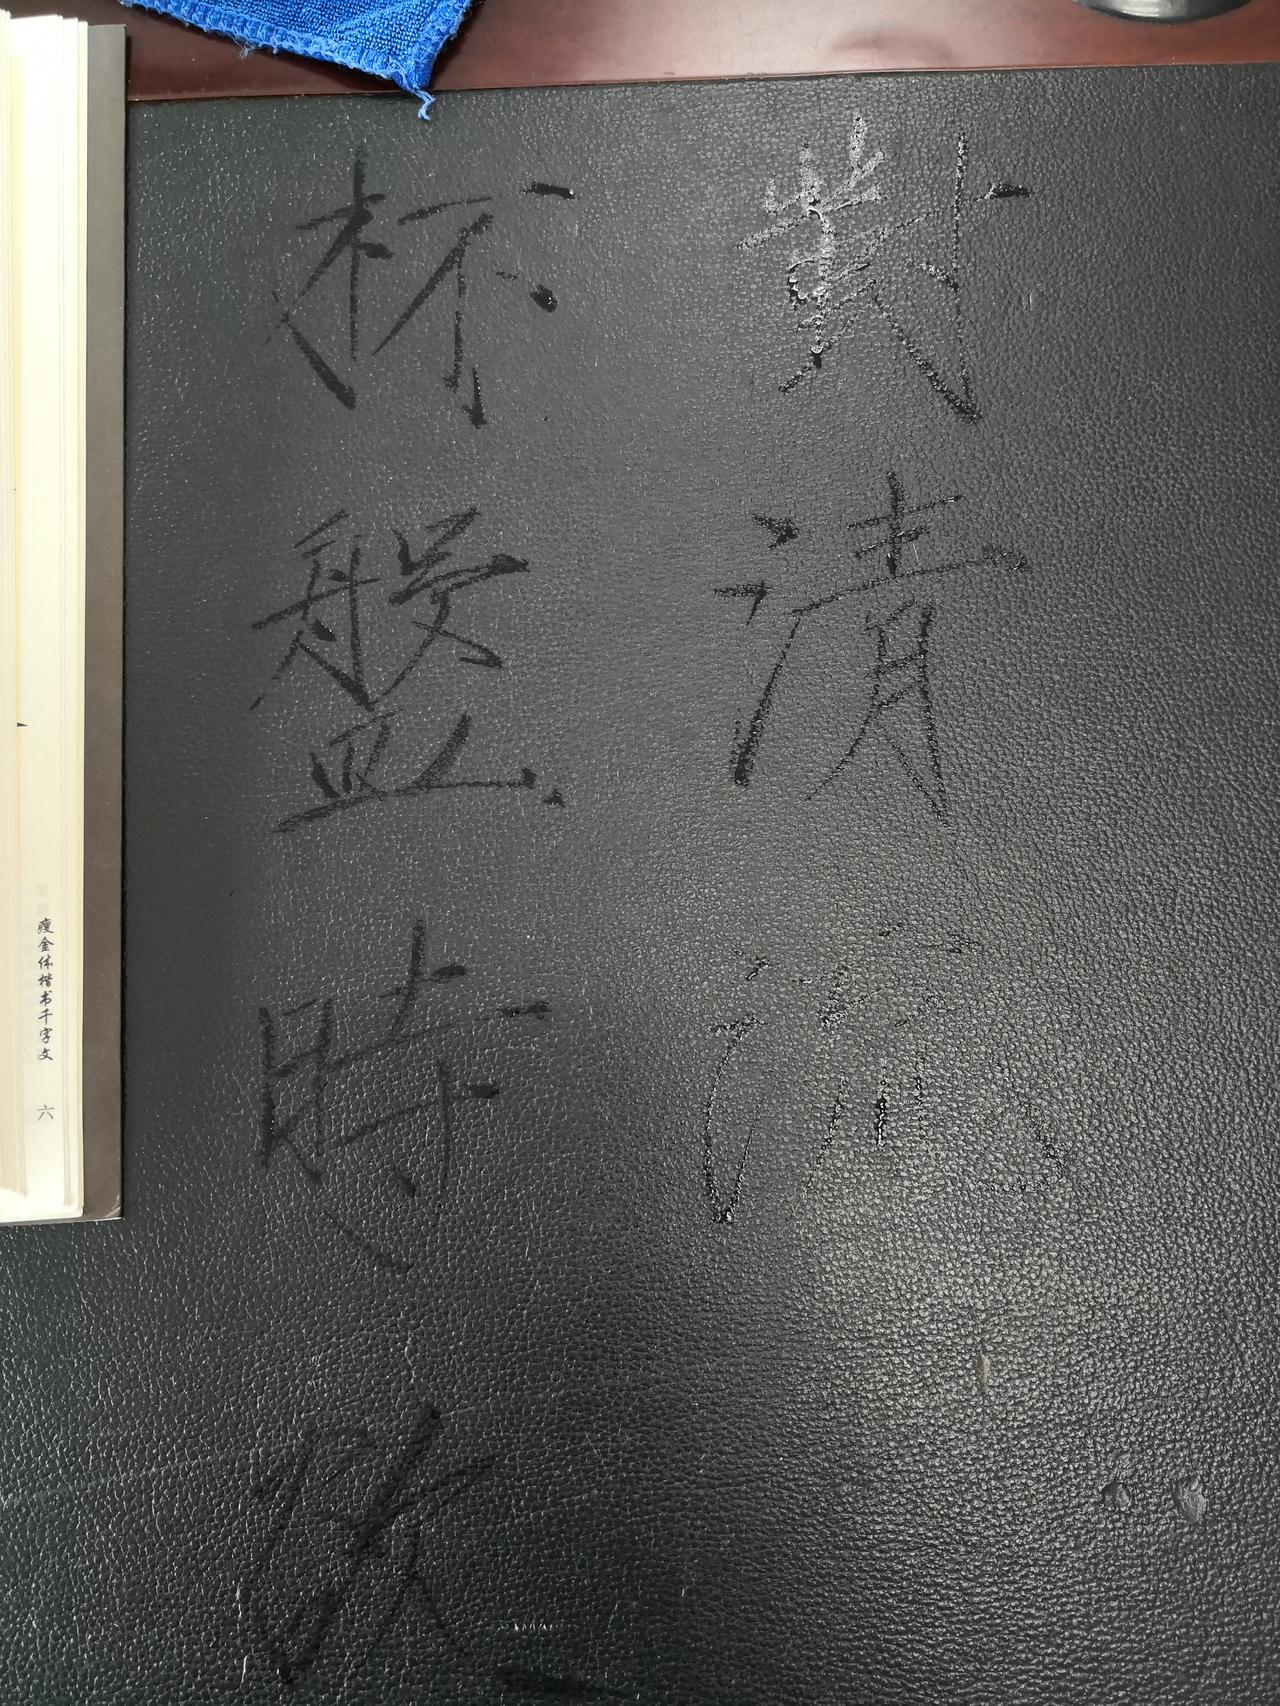 對清流
杯盤時
瘦金体楷书千字文 六